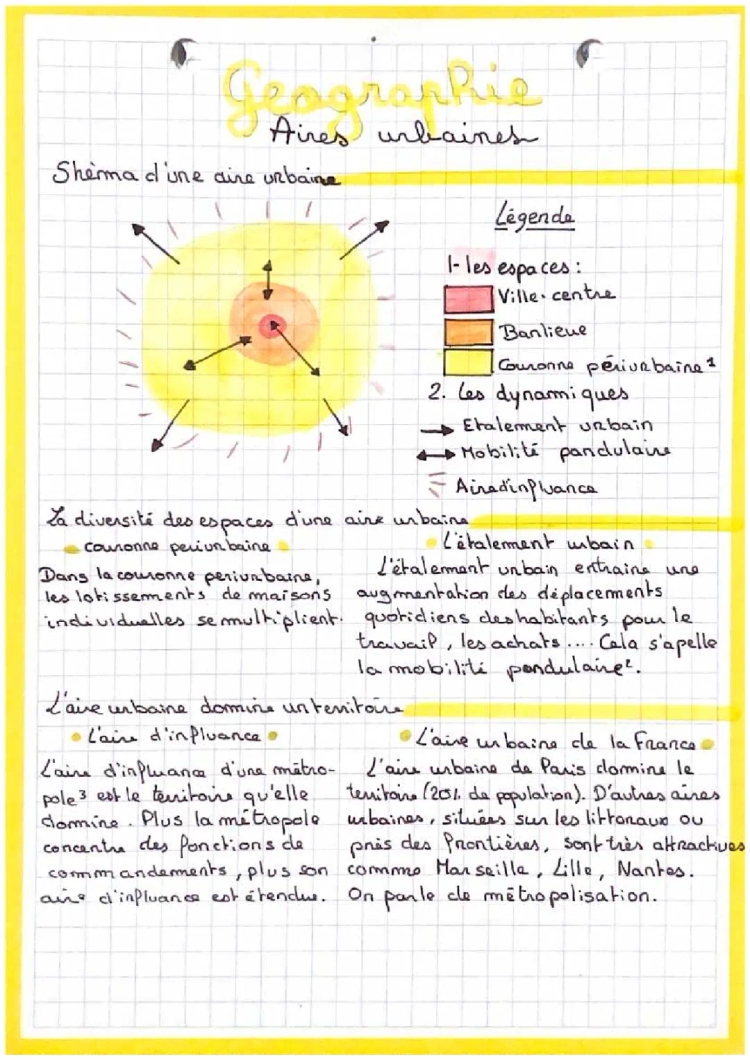 Geographie
Aires urbaines
Shèma d'une aire urbaine
Légende
1- les espaces :
Ville-centre
Banlieue
Couronne périurbaine 1
2. les dynamiques
Etalement urbain
Mobilité pandulaire
Aire d'influance
La diversité des espaces d'une aire urbaine
couronne periurbaine
Dans la couronne periurbaine,
les lotissements de maisons
individuelles se multiplient.
L'étalement urbain
L'étalement urbain entraine une
augmentation des déplacements
quotidiens des habitants pour le
travail, les achats .... Cela s'apelle
la mobilité pendulaire².
L'aire urbaine domine un territoire
L'aire d'influance
L'aire d'influance d'une métro-
pole³ est le territoire qu'elle
domine. Plus la métropole
concentre des fonctions de
commandements, plus son
aire d'influance est étendue.
L'aire urbaine de la France
L'aire urbaine de Paris domine le
territoire (20% de population). D'autres aires
urbaines, situées sur les littoraux ou
près des frontières, sont très attractives
comme Marseille, Lille, Nantes.
On parle de métropolisation.